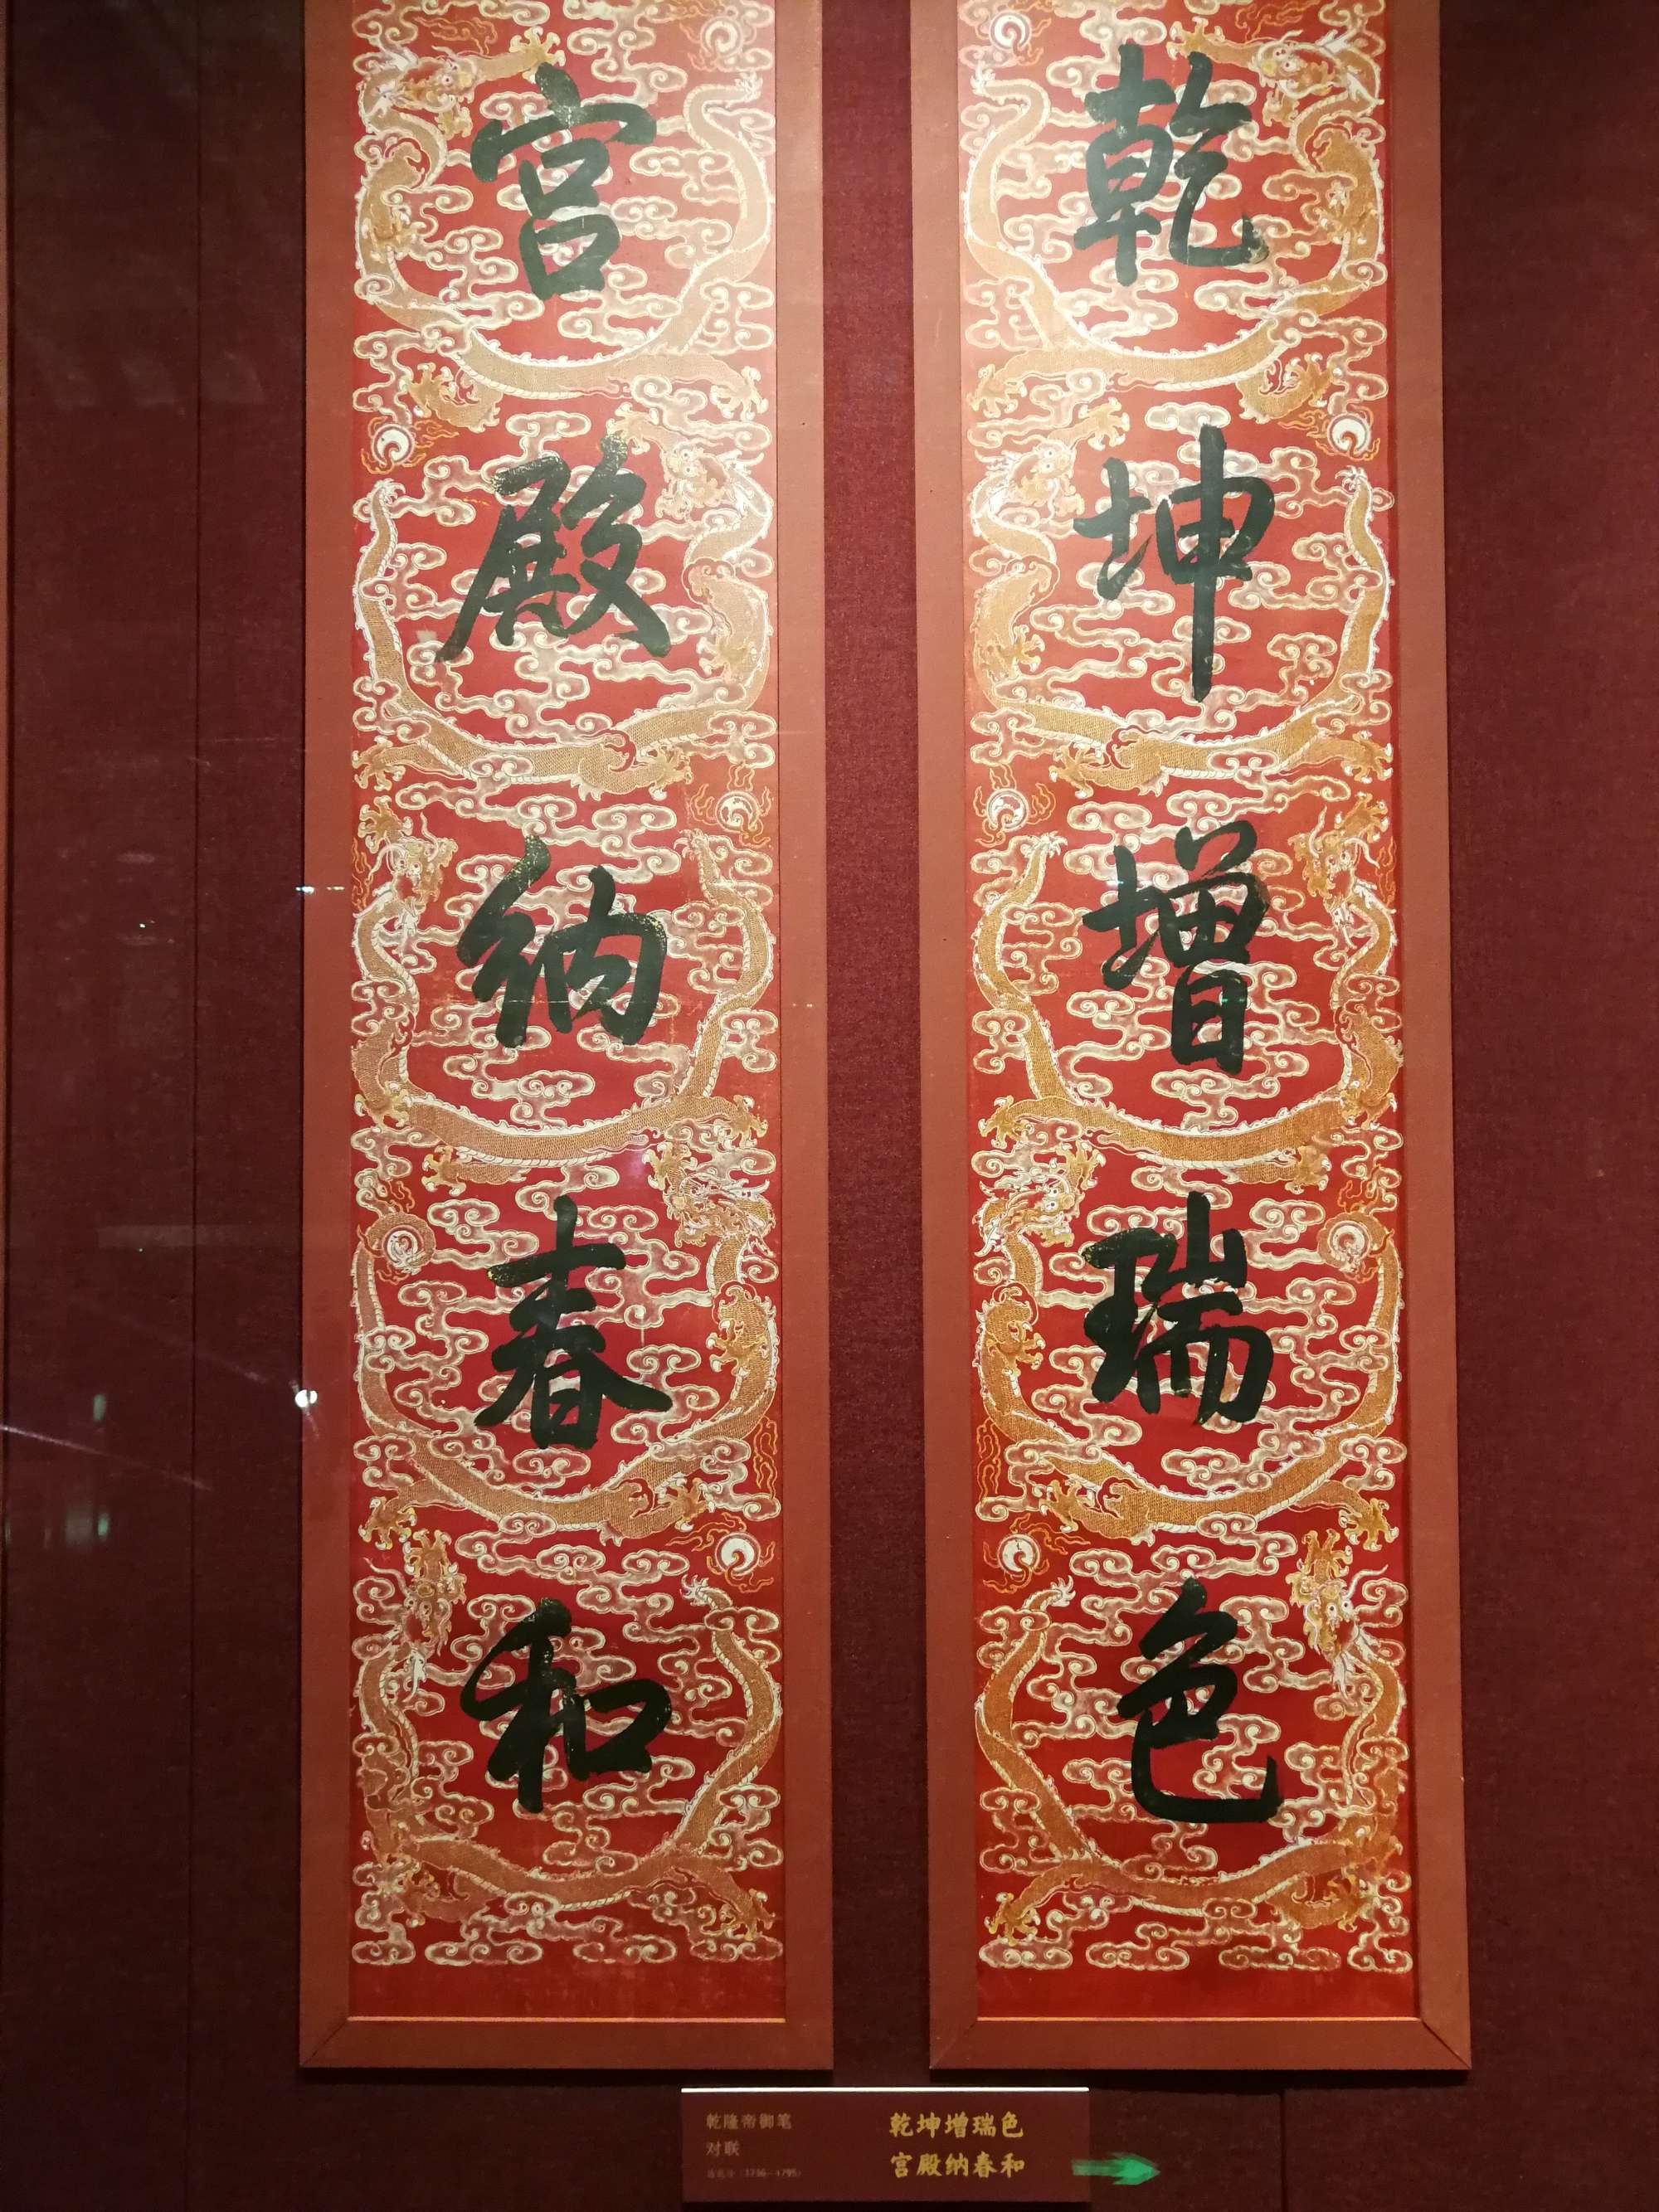 乾坤增瑞色
宫殿纳春和
乾隆帝御笔
对联
乾坤增瑞色
宫殿纳春和